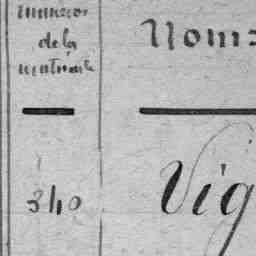 numéros
de la
matricule
Noms
340
Vig